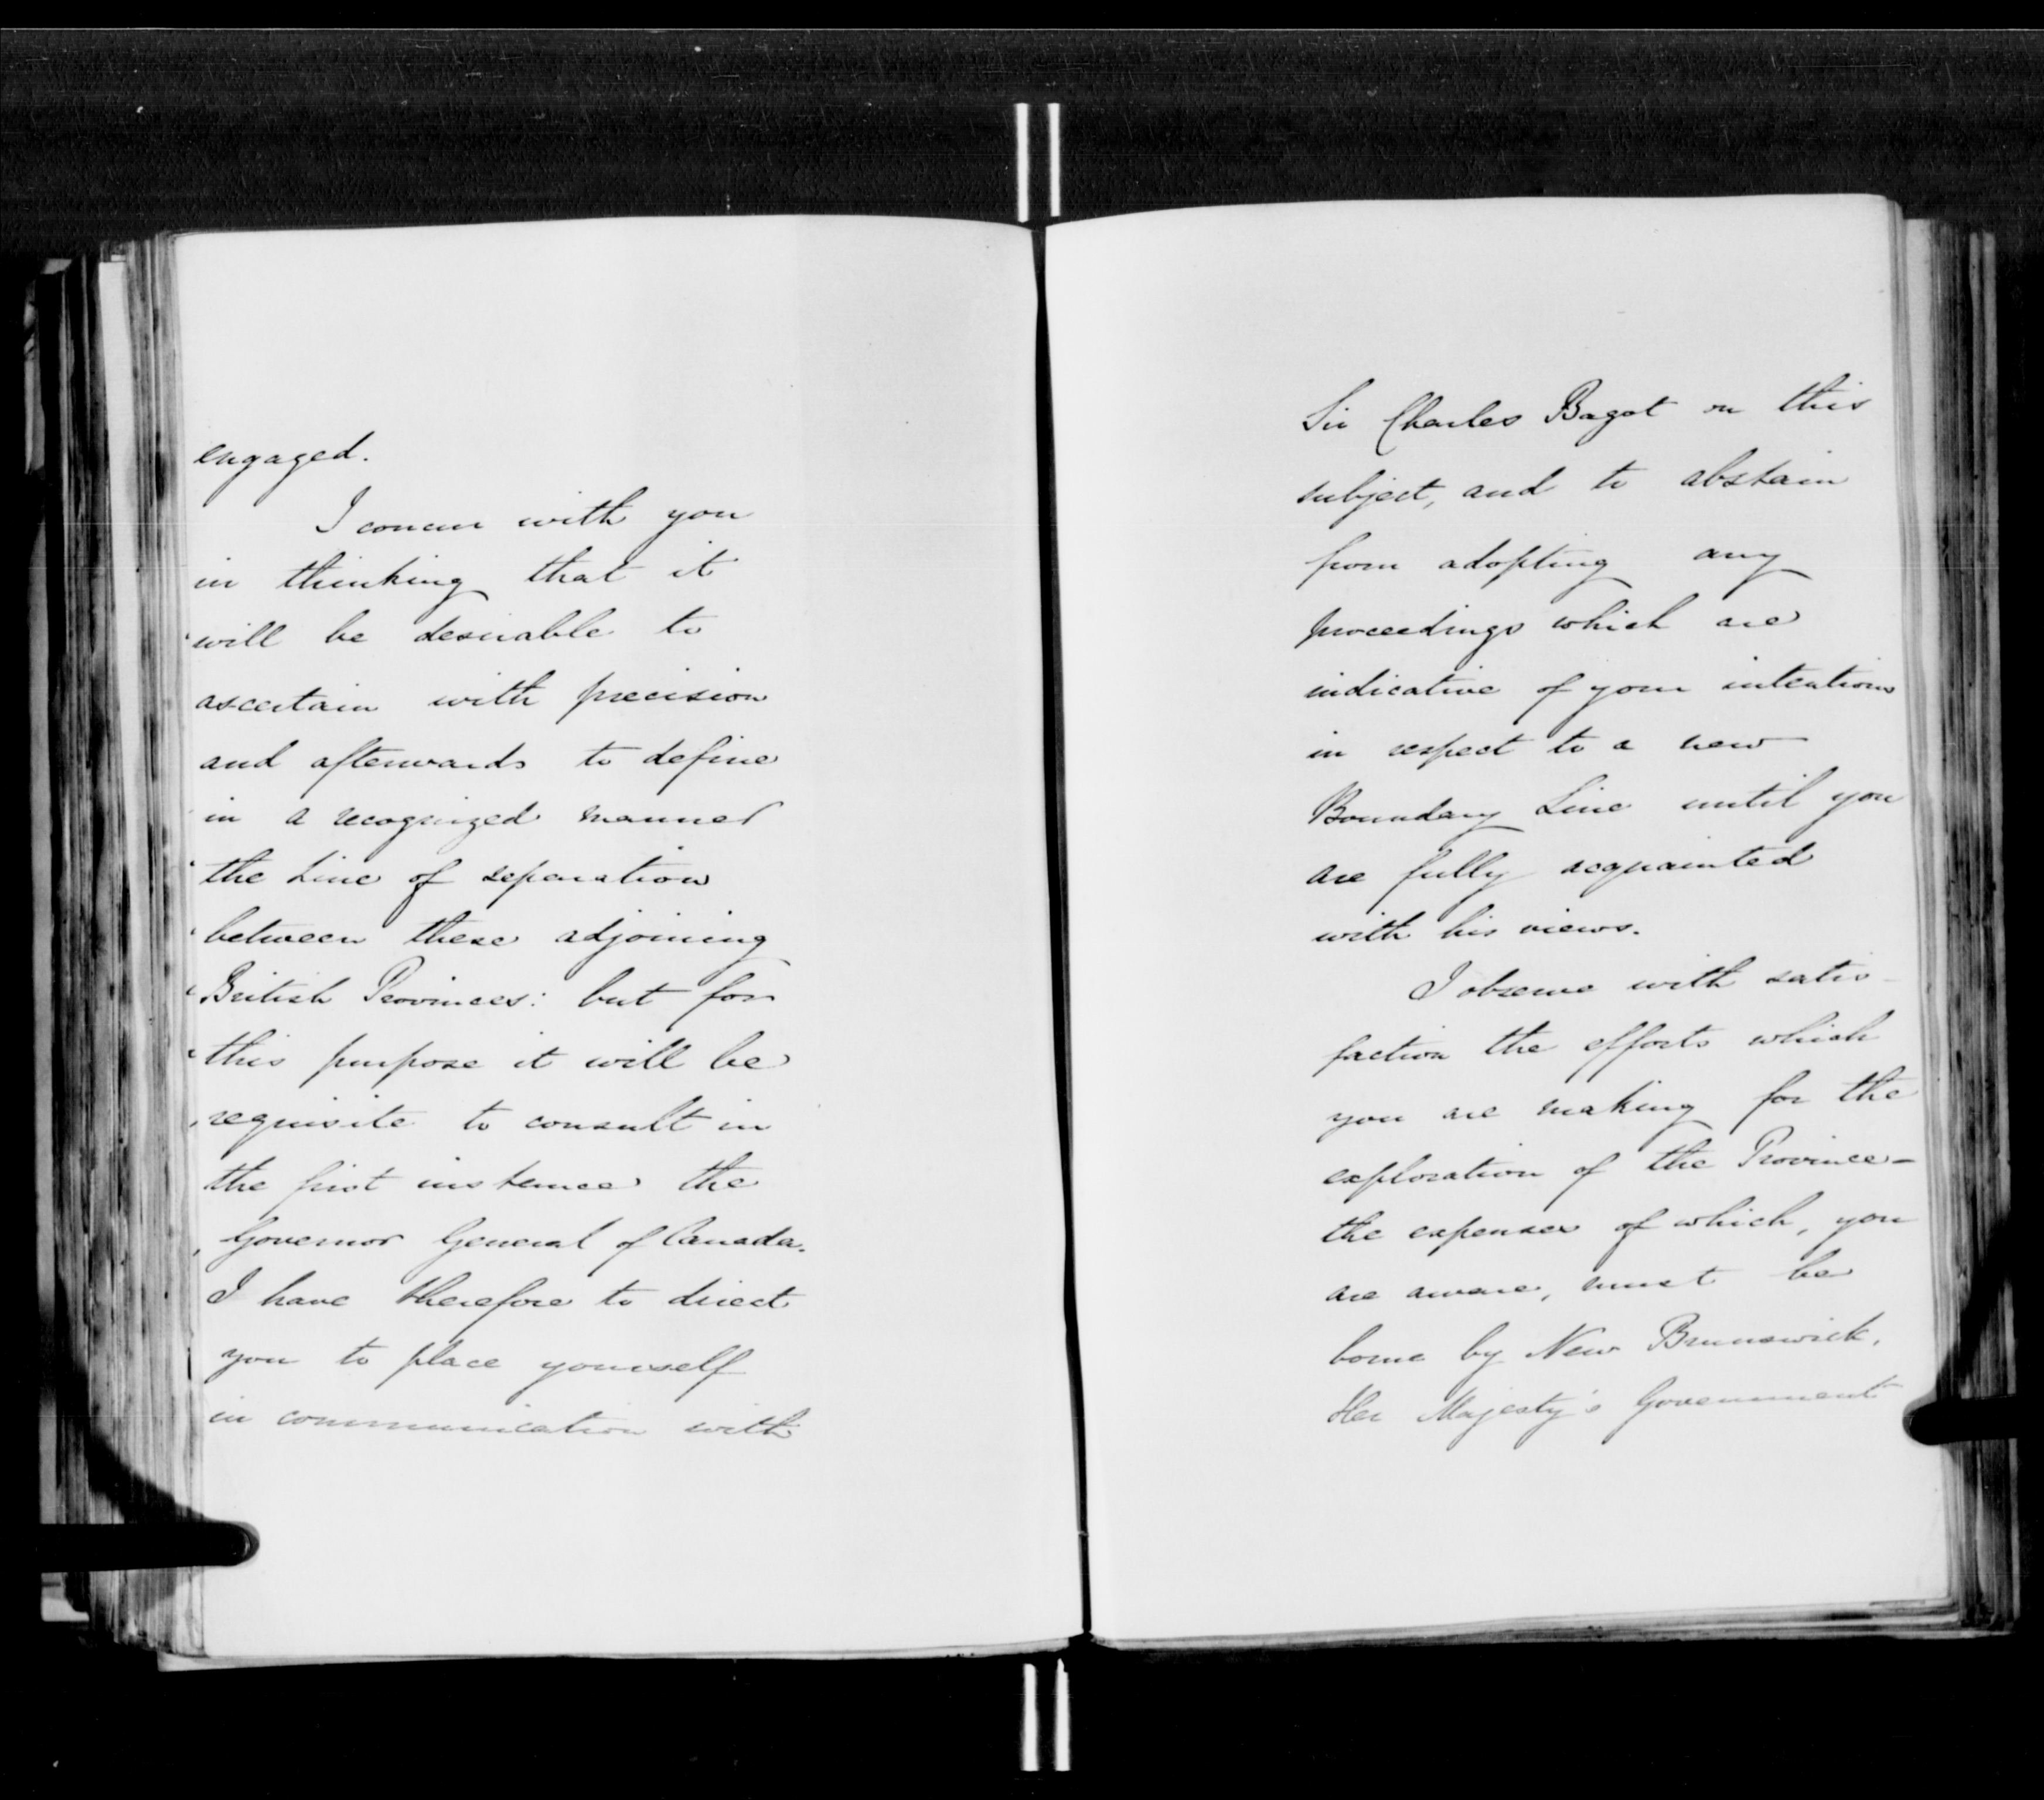 engaged.
I concur with you
in thinking that it
will be desirable to
ascertain with precision
and afterwards to define
in a recognized manner
the Line of separation
between these adjoining
British Provinces: but for
this purpose it will be
requisite to consult in
the first instance the
Governor General of Canada.
I have therefore to direct
you to place yourself
in communication with
Sir Charles Bagot on this
subject, and to abstain
from adopting any
proceedings which are
indicative of your intentions
in respect to a new
Boundary Line until you
are fully acquainted
with his views.
I observe with satis-
faction the efforts which
you are making for the
exploration of the Province-
the expenses of which, you
are aware, must be
borne by New Brunswick.
Her Majesty's Government